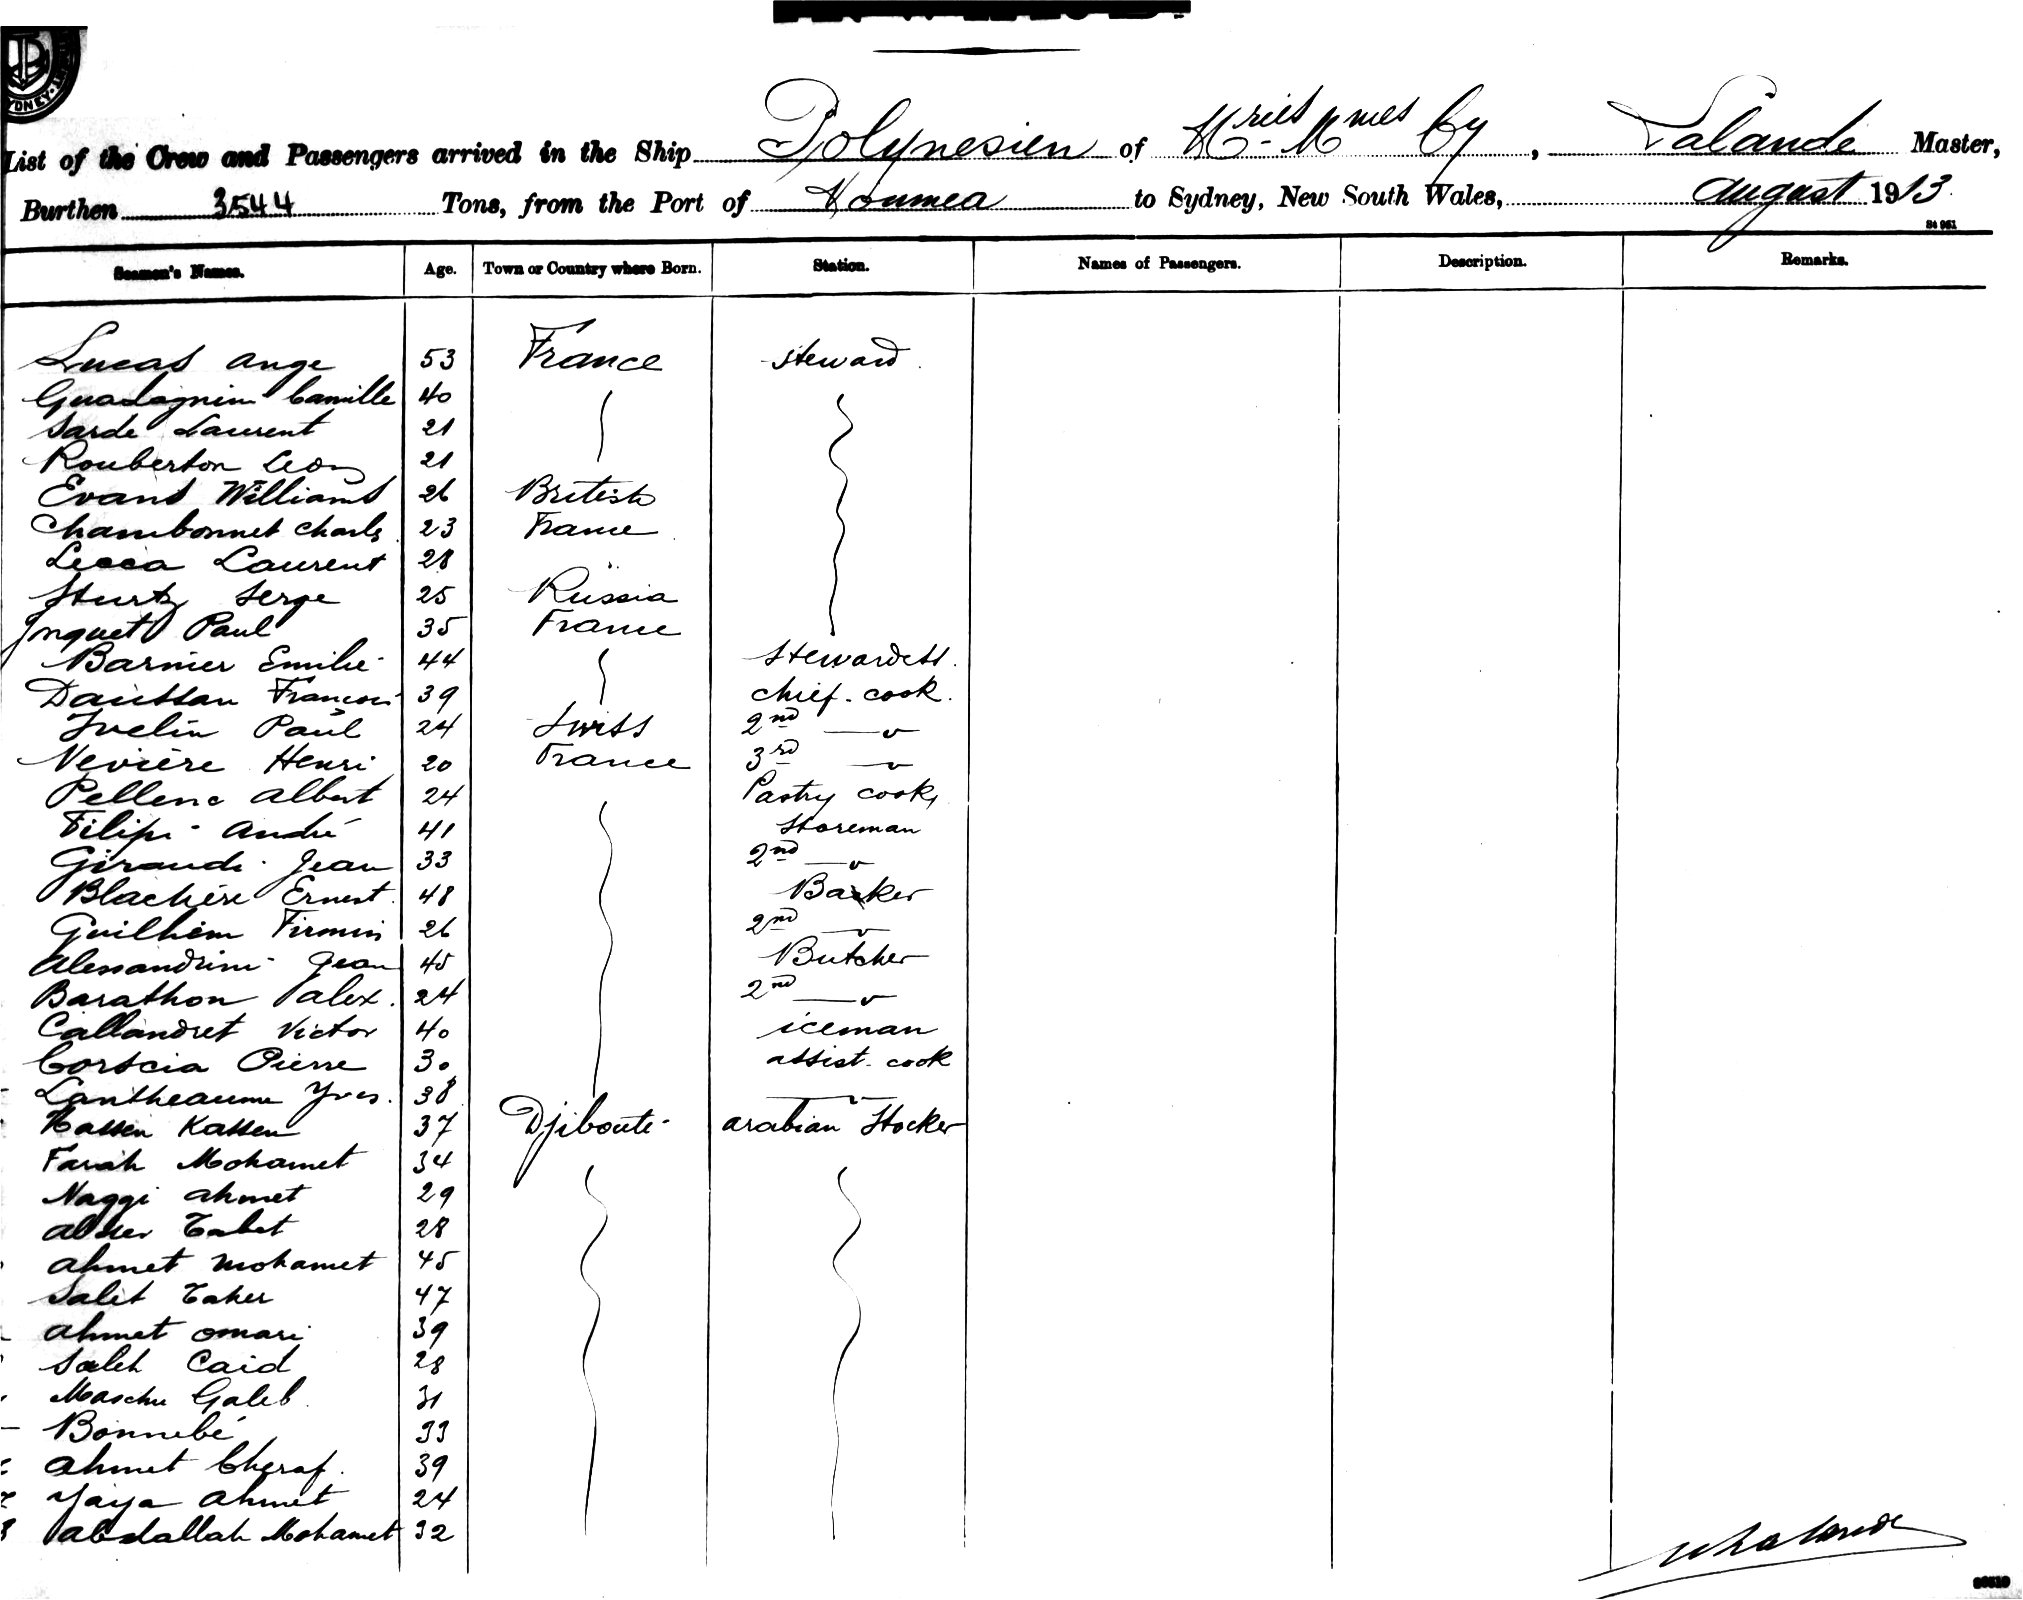 SYDNEY
List of the Crew and Passengers arrived in the Ship Polynesien of Mries Mmes Cy, Lalande Master,
Burthen 3544 Tons, from the Port of Noumea to Sydney, New South Wales, August 1913.
St 951
Seamen's Names. Age. Town or Country where Born. Station. Names of Passengers. Description. Remarks.
Lucas Ange 53 France Steward
Guadagnini Camille 40
Sarde Laurent 21
Rouberton Leon 21
Evans Williams 26 British
Chambonnet Charles 23 France
Lecca Laurent 28
Sturtz Serge 25 Russia
Inquet Paul 35 France
Barnier Emilie 44 Stewardess.
Daussan Francois 39 chief. cook.
Ivelin Paul 24 Swiss 2nd —"—
Nevière Henri 20 France 3rd —"—
Pellenc Albert 24 Pastry cook
Filipi André 41 Storeman
Giraudi Jean 33 2nd —"—
Blachère Ernest 48 Baker
Guilhem Firmin 26 2nd —"—
Alessandrini Jean 45 Butcher
Barathon Alex. 24 2nd —"—
Callandret Victor 40 iceman
Corscia Pierre 30 assist. cook
Lantheaume Yves. 38 —"—
Hassen Kassen 37 Djibouti arabian Stocker
Farah Mohamet 34
Naggi Ahmet 29
Tabet 28
Ahmet Mohamet 45
Salet Taher 47
Ahmet Omari 39
Saleh Caid 28
Maschu Galeb 31
Bonnebé 33
Ahmet Cheraf. 39
Yaya Ahmet 24
Abdallah Mohamet 32
Lalande